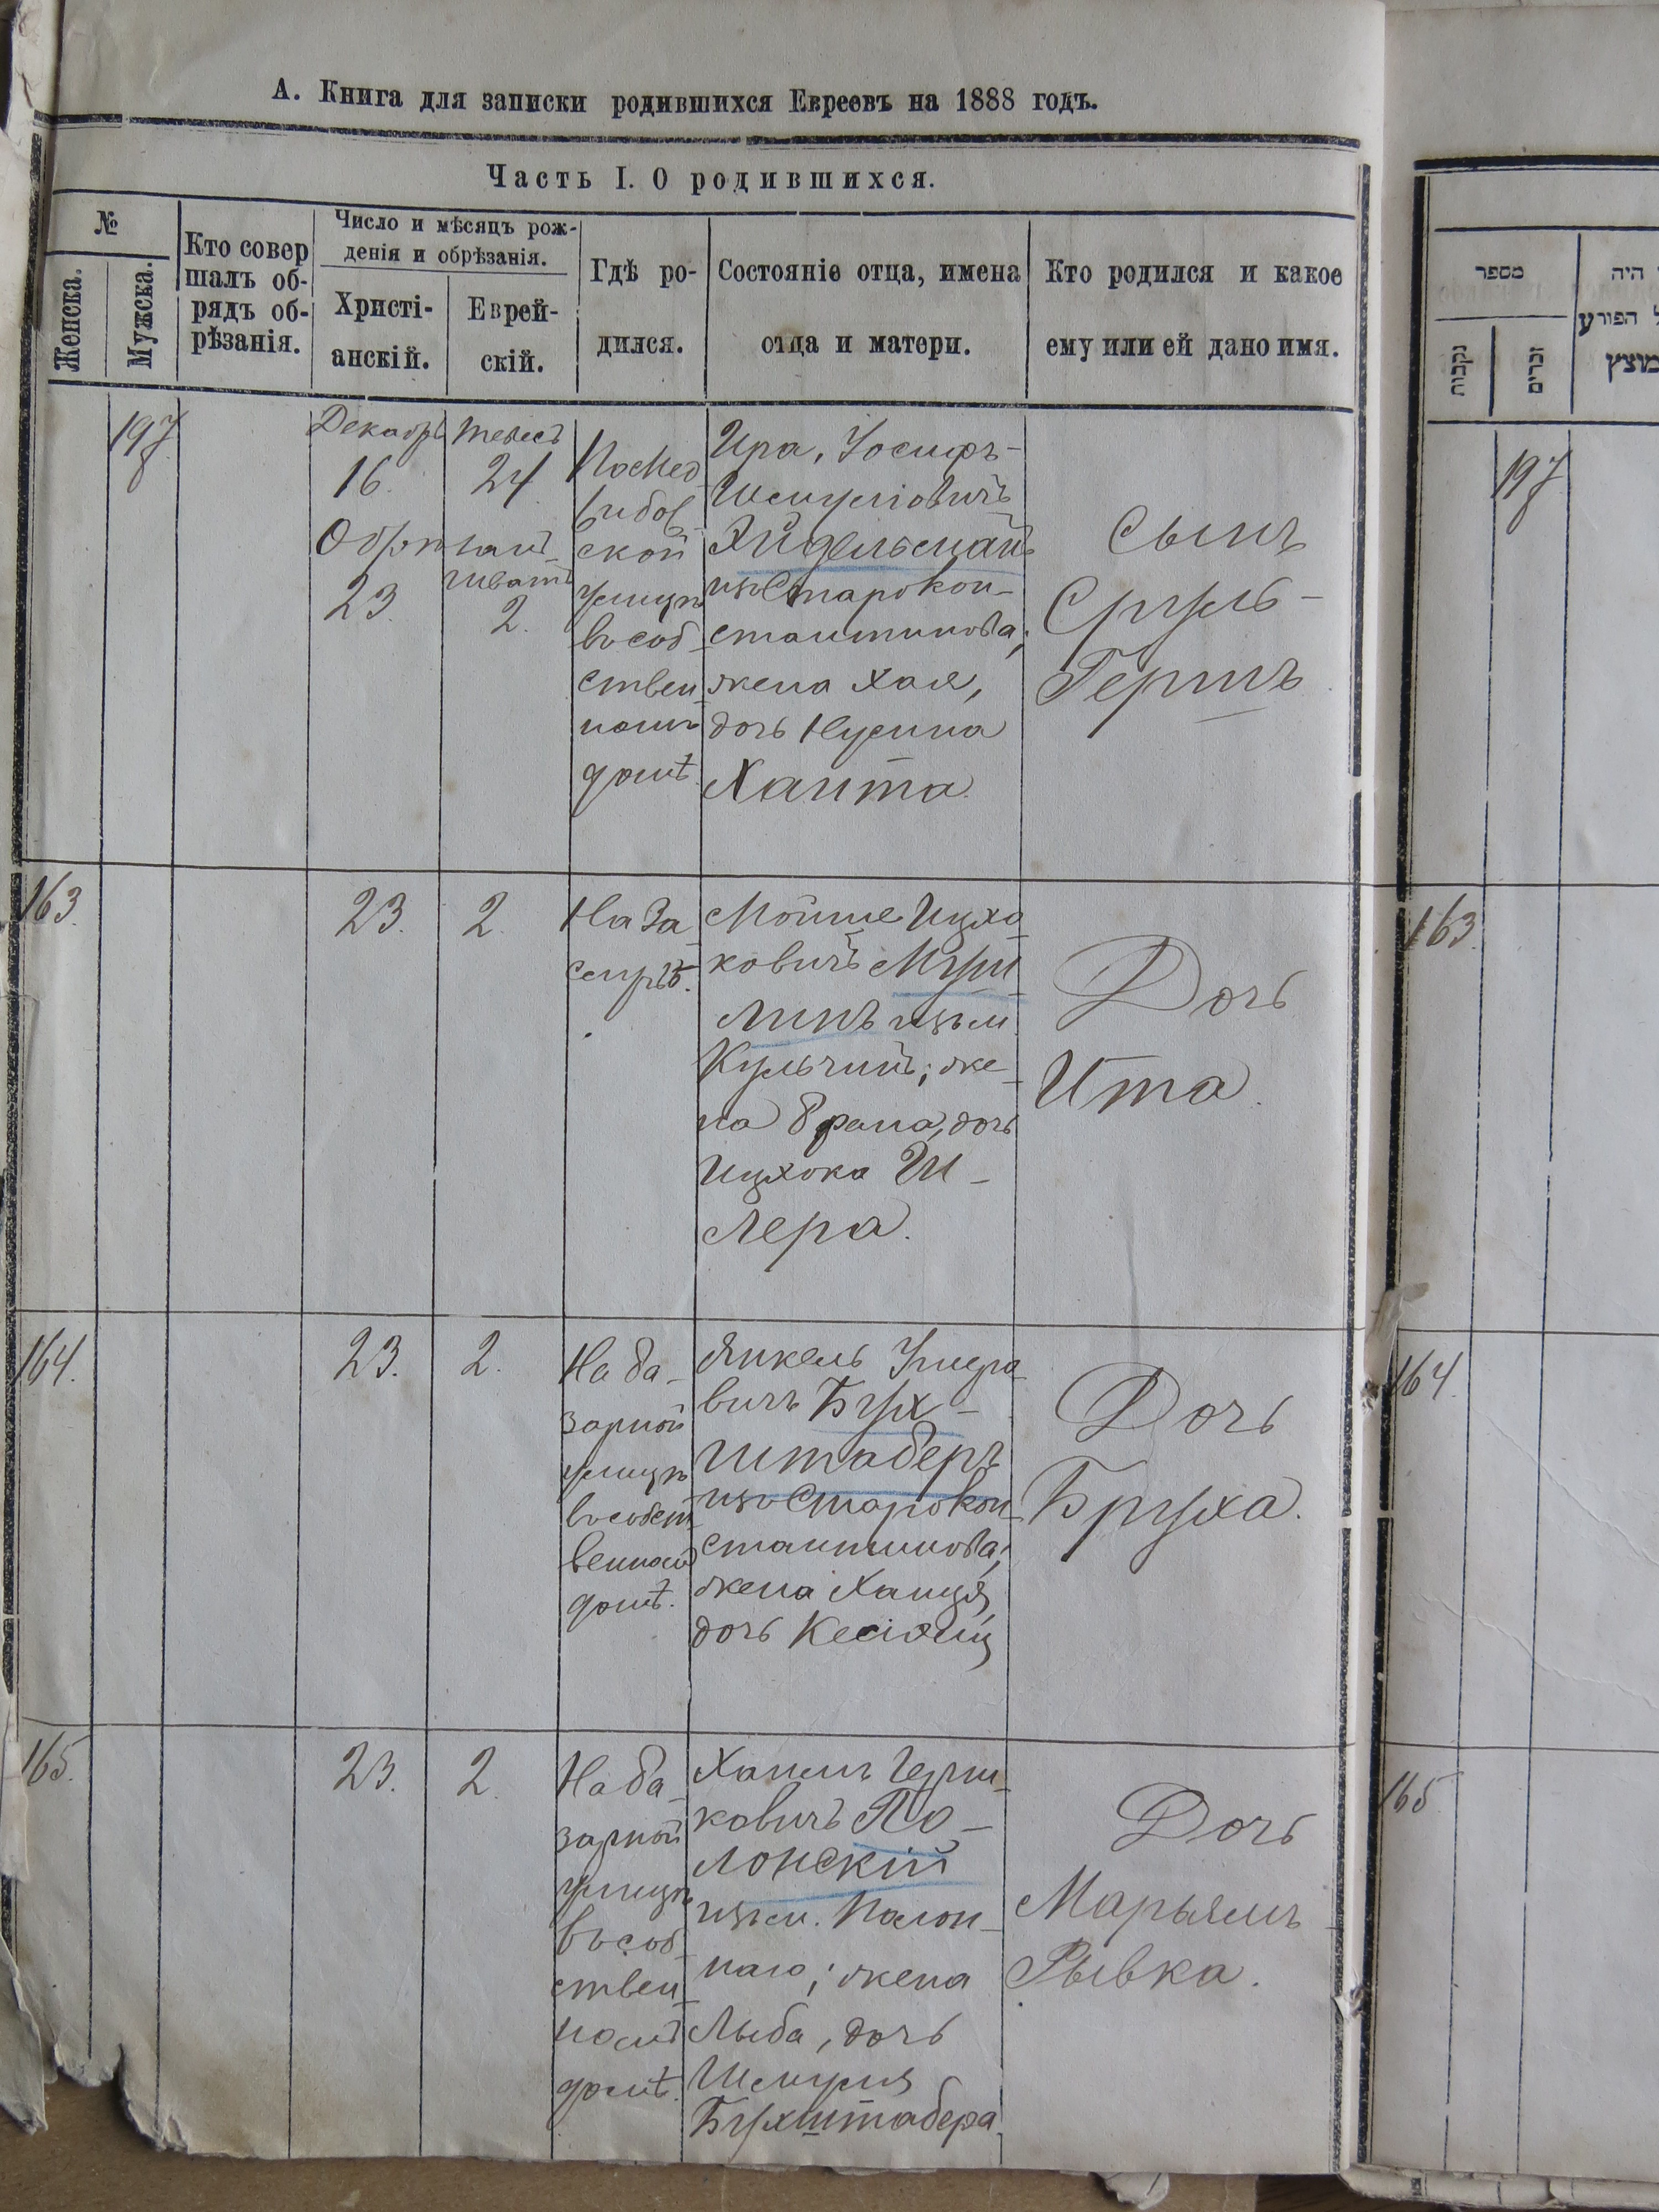 А. Книга для записки родившихся Евреевъ на 1888 годъ.
Часть I. О родившихся.
№
Женска.
Мужска.
Кто совер
шалъ об-
рядъ об-
рѣзанія.
Число и мѣсяцъ рож-
денія и обрѣзанія.
Христі-
анскій.
Еврей-
скій.
Гдѣ ро-
дился.
Состояніе отца, имена
отца и матери.
Кто родился и какое
ему или ей дано имя.
197
Декабрь
16.
23.
Тевесъ
24.
Шватъ
2.
ской
улицѣ
въ соб
ствен
номъ
домѣ.
Ира, Іосифъ-
Шмулiовичъ
Эйдельсманъ
изъ Старокон-
стантинова;
жена Хая,
дочь Нусина
Ханта.
Сынъ
Сруль-
Гершъ.
163.
23.
2.
На За
Мойше Ицхо
ковичъ Мур
линъ изъ м.
Кульчинъ; же-
на Франа, дочь
Ицхока Ш-
лера.
Дочь
Ита.
164.
23.
2.
На ба-
зарной
улицѣ
въ собст
венномъ
домѣ.
Янкель
вичъ Бух-
штаберъ
изъ Старокон-
стантинова;
жена Ханця,
дочь
Дочь
Бруха.
165.
23.
2
На ба-
зарной
улицѣ
въ соб-
ствен-
номъ
домѣ.
Хаимъ Герш-
ковичъ По-
лонскій
изъ м. Полон-
наго; жена
Лыба, дочь
Шмуля
Бухштабера.
Дочь
Марьямъ-
Рывка.
מספר
נקבות
זכרים
היה
הפורע
מוצץ
197
163.
164.
165